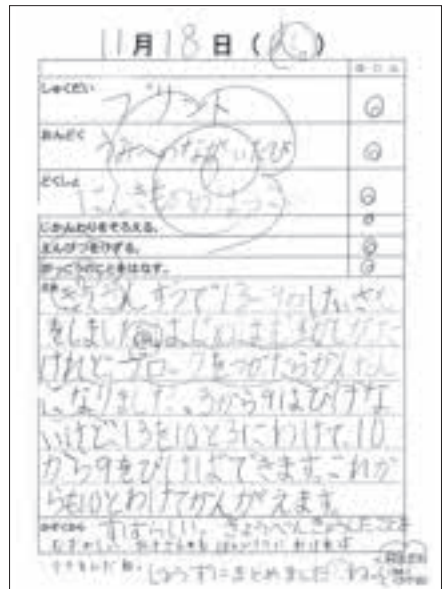 11月18日(火)
しゅくだい プリント
おんどく うみへのながいたび
どくしょ
じかんわりをそろえる。
えんぴつをけずる。
がっこうのことをはなす。
きょうさんすうで13-9のけいさん
をしました。はじめはむずかしかった
けれど、ブロックをつかったらかんたん
になりました。3から9はひけな
いけど、13を10と3にわけて、10
から9をひけばできます。これか
らも10とわけてかんがえます。
かぞくから すばらしい。きょうべんきょうしたことを
じょうずにまとめましたね。